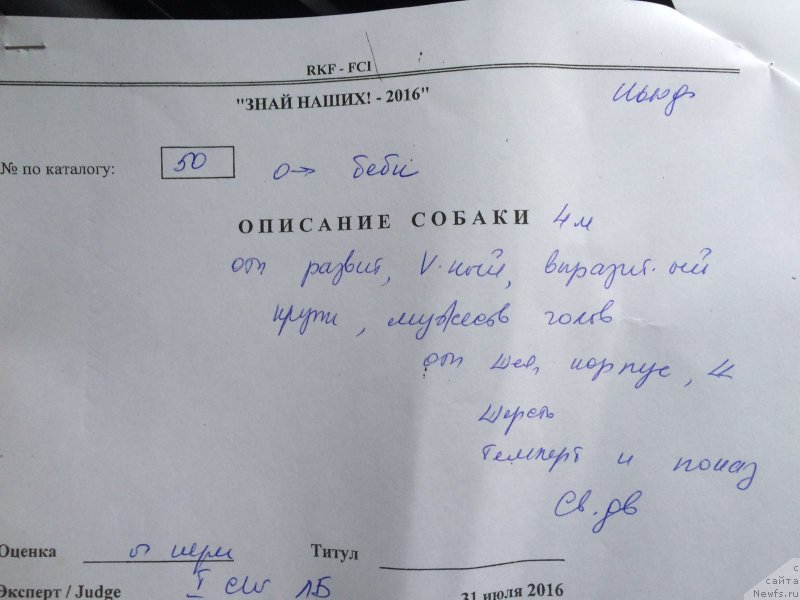 RKF - FCI
"ЗНАЙ НАШИХ! - 2016"
Ньюф
№ по каталогу: 50 беби
ОПИСАНИЕ СОБАКИ 4 м
отл развит, V-ный, выразит-ый
крупн, мужеств голов
отл шея, корпус,
шерсть
темперт и показ
Св. дв
Оценка оч перс Титул
Эксперт / Judge I CW ЛБ 31 июля 2016
с
сайта
Newfs.ru